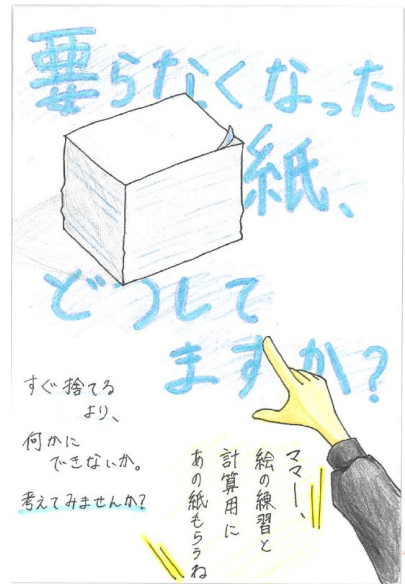 要らなくなった
紙、
どうして
ますか?
すぐ捨てる
より、
何かに
できないか。
考えてみませんか?
ママー、
絵の練習と
計算用に
あの紙もらうね